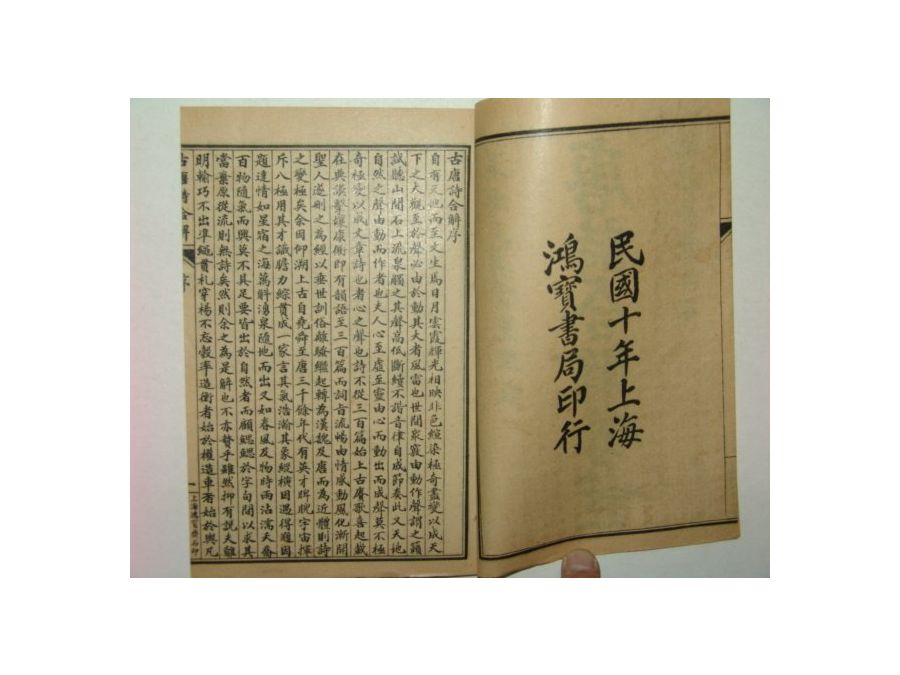 民國十年上海
鴻寶書局印行
古唐詩合解序
自有天地而至文生焉日月雲霞輝光相映非色絢染極奇盡變以成天
下之大觀至於聲必由於動其大者風雷也世間衆竅由動作聲謂之籟
試聽山間石上流泉觸之其聲高低斷續不諧音律自成節奏此又天地
自然之聲由動而作者也夫人心至虛至靈由心而動出而成聲莫不極
奇極變以成文章詩也者心之聲也詩不從三百篇始上古賡歌喜起載
在典謨擊壤康衢即有韻語至三百篇而詞旨流暢由情感動風化漸開
聖人遂刪之為經以垂世訓俗離騷繼起轉為漢魏及唐而為近體則詩
之變極矣余因仰溯上古自堯舜至唐三千餘年代有英才睥睨宇宙揮
斥八極用其才識膽力綜貫成一家言其氣浩瀚其象縱橫因遇得題因
題達情如星宿之海萬斛湧泉隨地而出又如春風及物時雨沾濡夭喬
百物隨氣而興莫不具足要皆出於自然者而顧鰓鰓於字句間以求其
當棄原從流則無詩矣然則余之為是解也不亦贅乎雖然抑有說夫離
明輸巧不出準繩貫札穿楊不忘彀率造衡者始於權造車者始於輿凡
古唐詩合解 序 一 上海鴻寶書局印